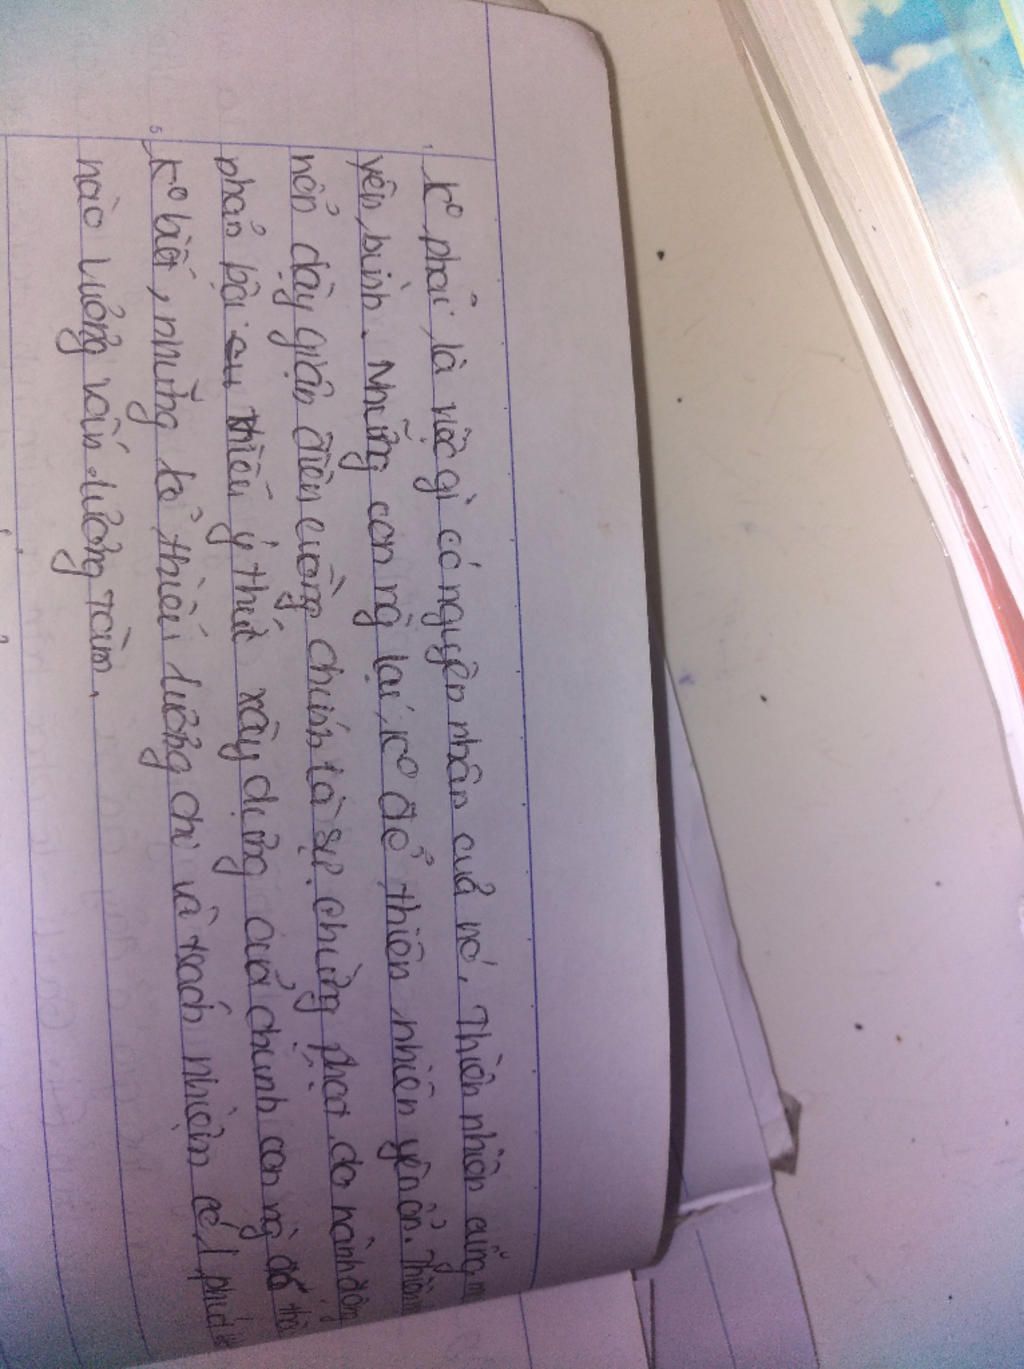 K⁰ phải là việc gì có nguyên nhân của nó. Thiên nhiên cũng m
yên bình. Những con ng̀ lại k⁰ để thiên nhiên yên ổn. Thiên n
nổi dậy giận điên cuồng chính là sự chừng phạt do hành động
phản bội thiếu ý thức xây dựng của chính con ng̀ đó
K⁰ biết, những kẻ thiếu lương chi và trách nhiệm có 1 phút
nào vướng vấn lương tâm.